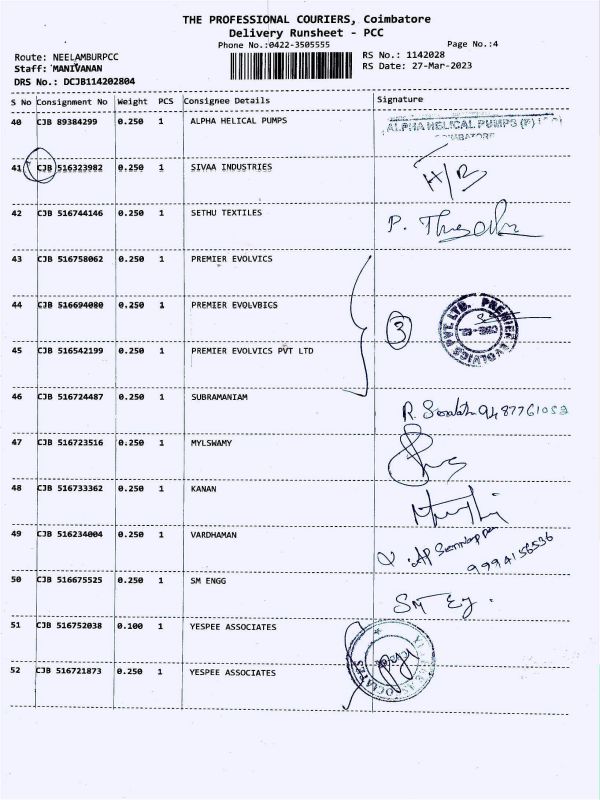 THE PROFESSIONAL COURIERS, Coimbatore
Delivery Runsheet - PCC
Phone No.:0422-3505555 Page No.:4
Route: NEELAMBURPCC RS No.: 1142028
Staff: MANIVANAN RS Date: 27-Mar-2023
DRS No.: DCJB114202804
S No Consignment No Weight PCS Consignee Details Signature
40 CJB 89384299 0.250 1 ALPHA HELICAL PUMPS ALPHA HELICAL PUMPS (P)
41 CJB 516323982 0.250 1 SIVAA INDUSTRIES H/B
42 CJB 516744146 0.250 1 SETHU TEXTILES P.
43 CJB 516758062 0.250 1 PREMIER EVOLVICS
44 CJB 516694080 0.250 1 PREMIER EVOLVBICS 3 PREMIER EVOLVICS PVT. LTD.
45 CJB 516542199 0.250 1 PREMIER EVOLVICS PVT LTD
46 CJB 516724487 0.250 1 SUBRAMANIAM R. 9487761052
47 CJB 516723516 0.250 1 MYLSWAMY
48 CJB 516733362 0.250 1 KANAN
49 CJB 516234004 0.250 1 VARDHAMAN 9994156536
50 CJB 516675525 0.250 1 SM ENGG SM Eg.
51 CJB 516752038 0.100 1 YESPEE ASSOCIATES
52 CJB 516721873 0.250 1 YESPEE ASSOCIATES